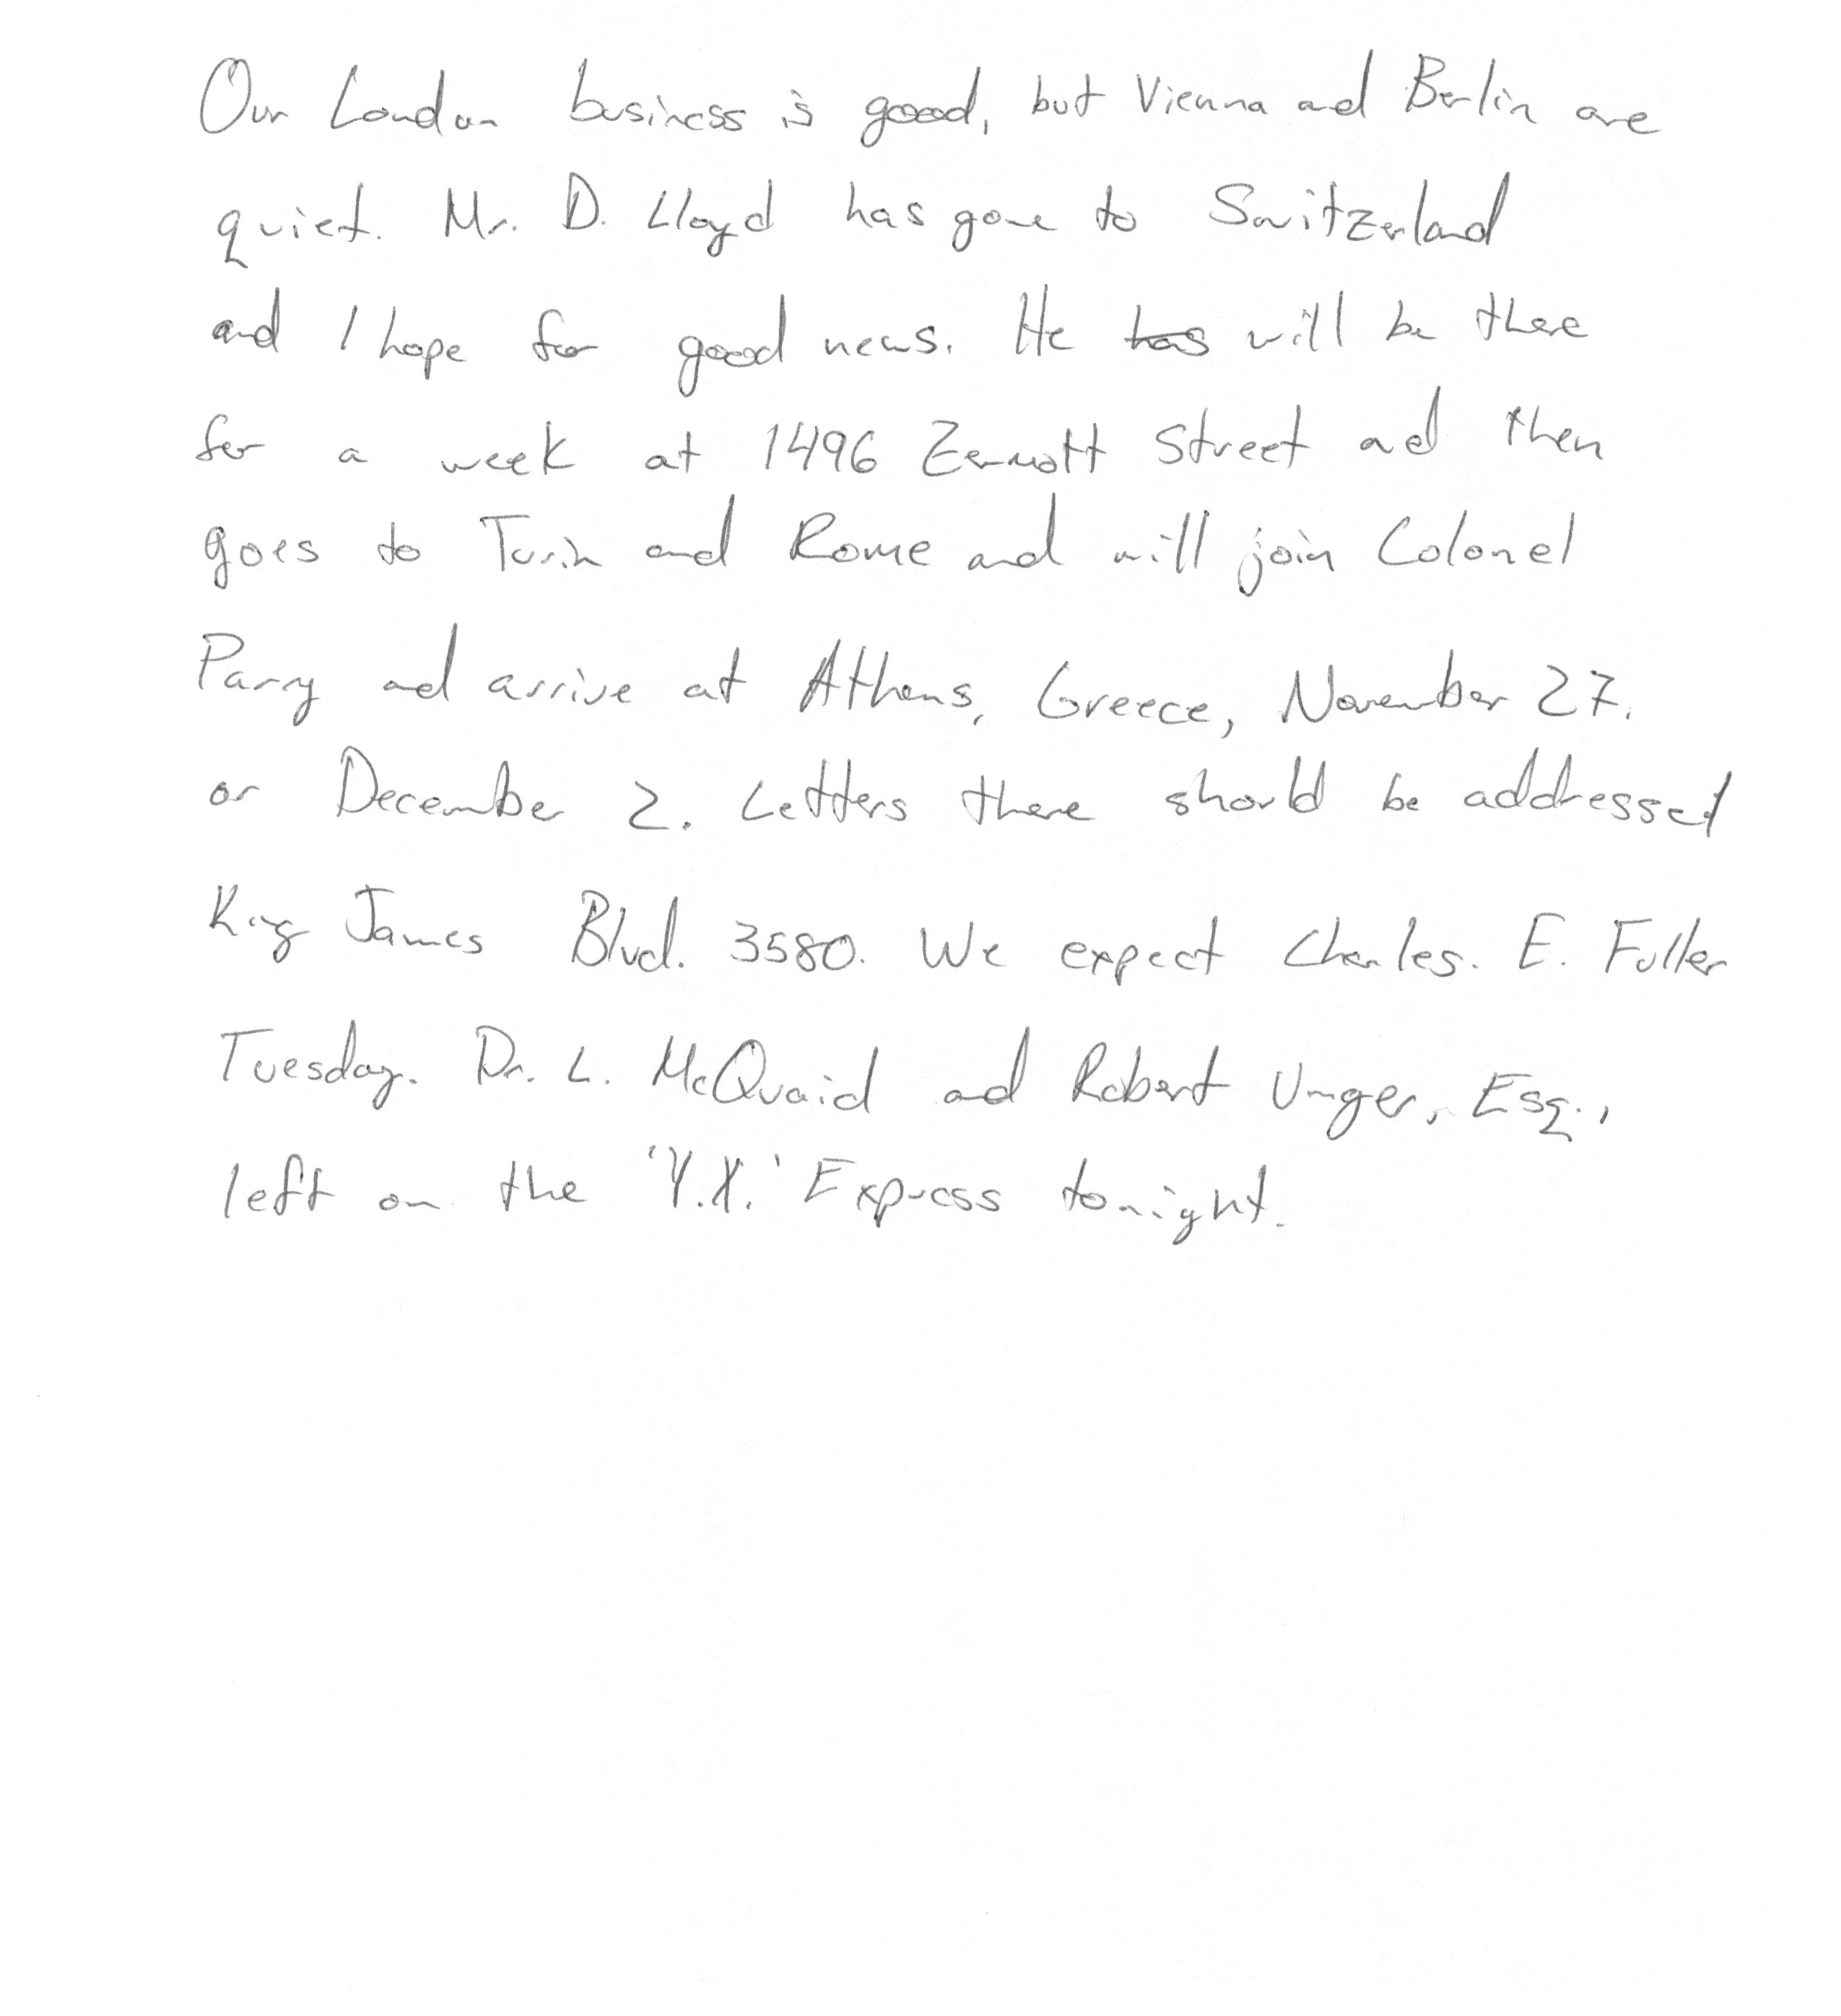 Our London business is good, but Vienna and Berlin are
quiet. Mr. D. Lloyd has gone to Switzerland
and I hope for good news. He has will be there
for a week at 1496 Zermott Street and then
goes to Turin and Rome and will join Colonel
Parry and arrive at Athens, Greece, November 27.
or December 2. Letters there should be addressed
King James Blvd. 3580. We expect Charles. E. Fuller
Tuesday. Dr. L. McQuaid and Robert Unger, Esq.,
left on the 'Y.X.' Express tonight.